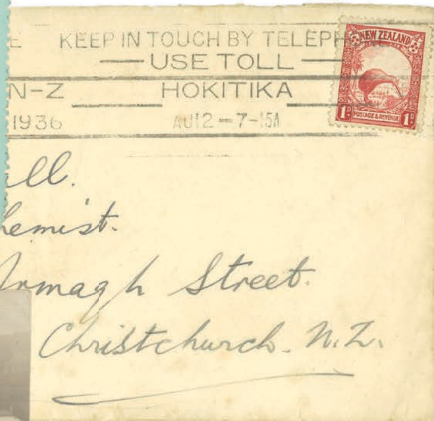 KEEP IN TOUCH BY TELEPH
USE TOLL
N-Z HOKITIKA
1936 AU 12 - 7-15A
NEW ZEALAND
1D POSTAGE & REVENUE 1D
ll.
hemist.
Armagh Street.
Christchurch. N.Z.